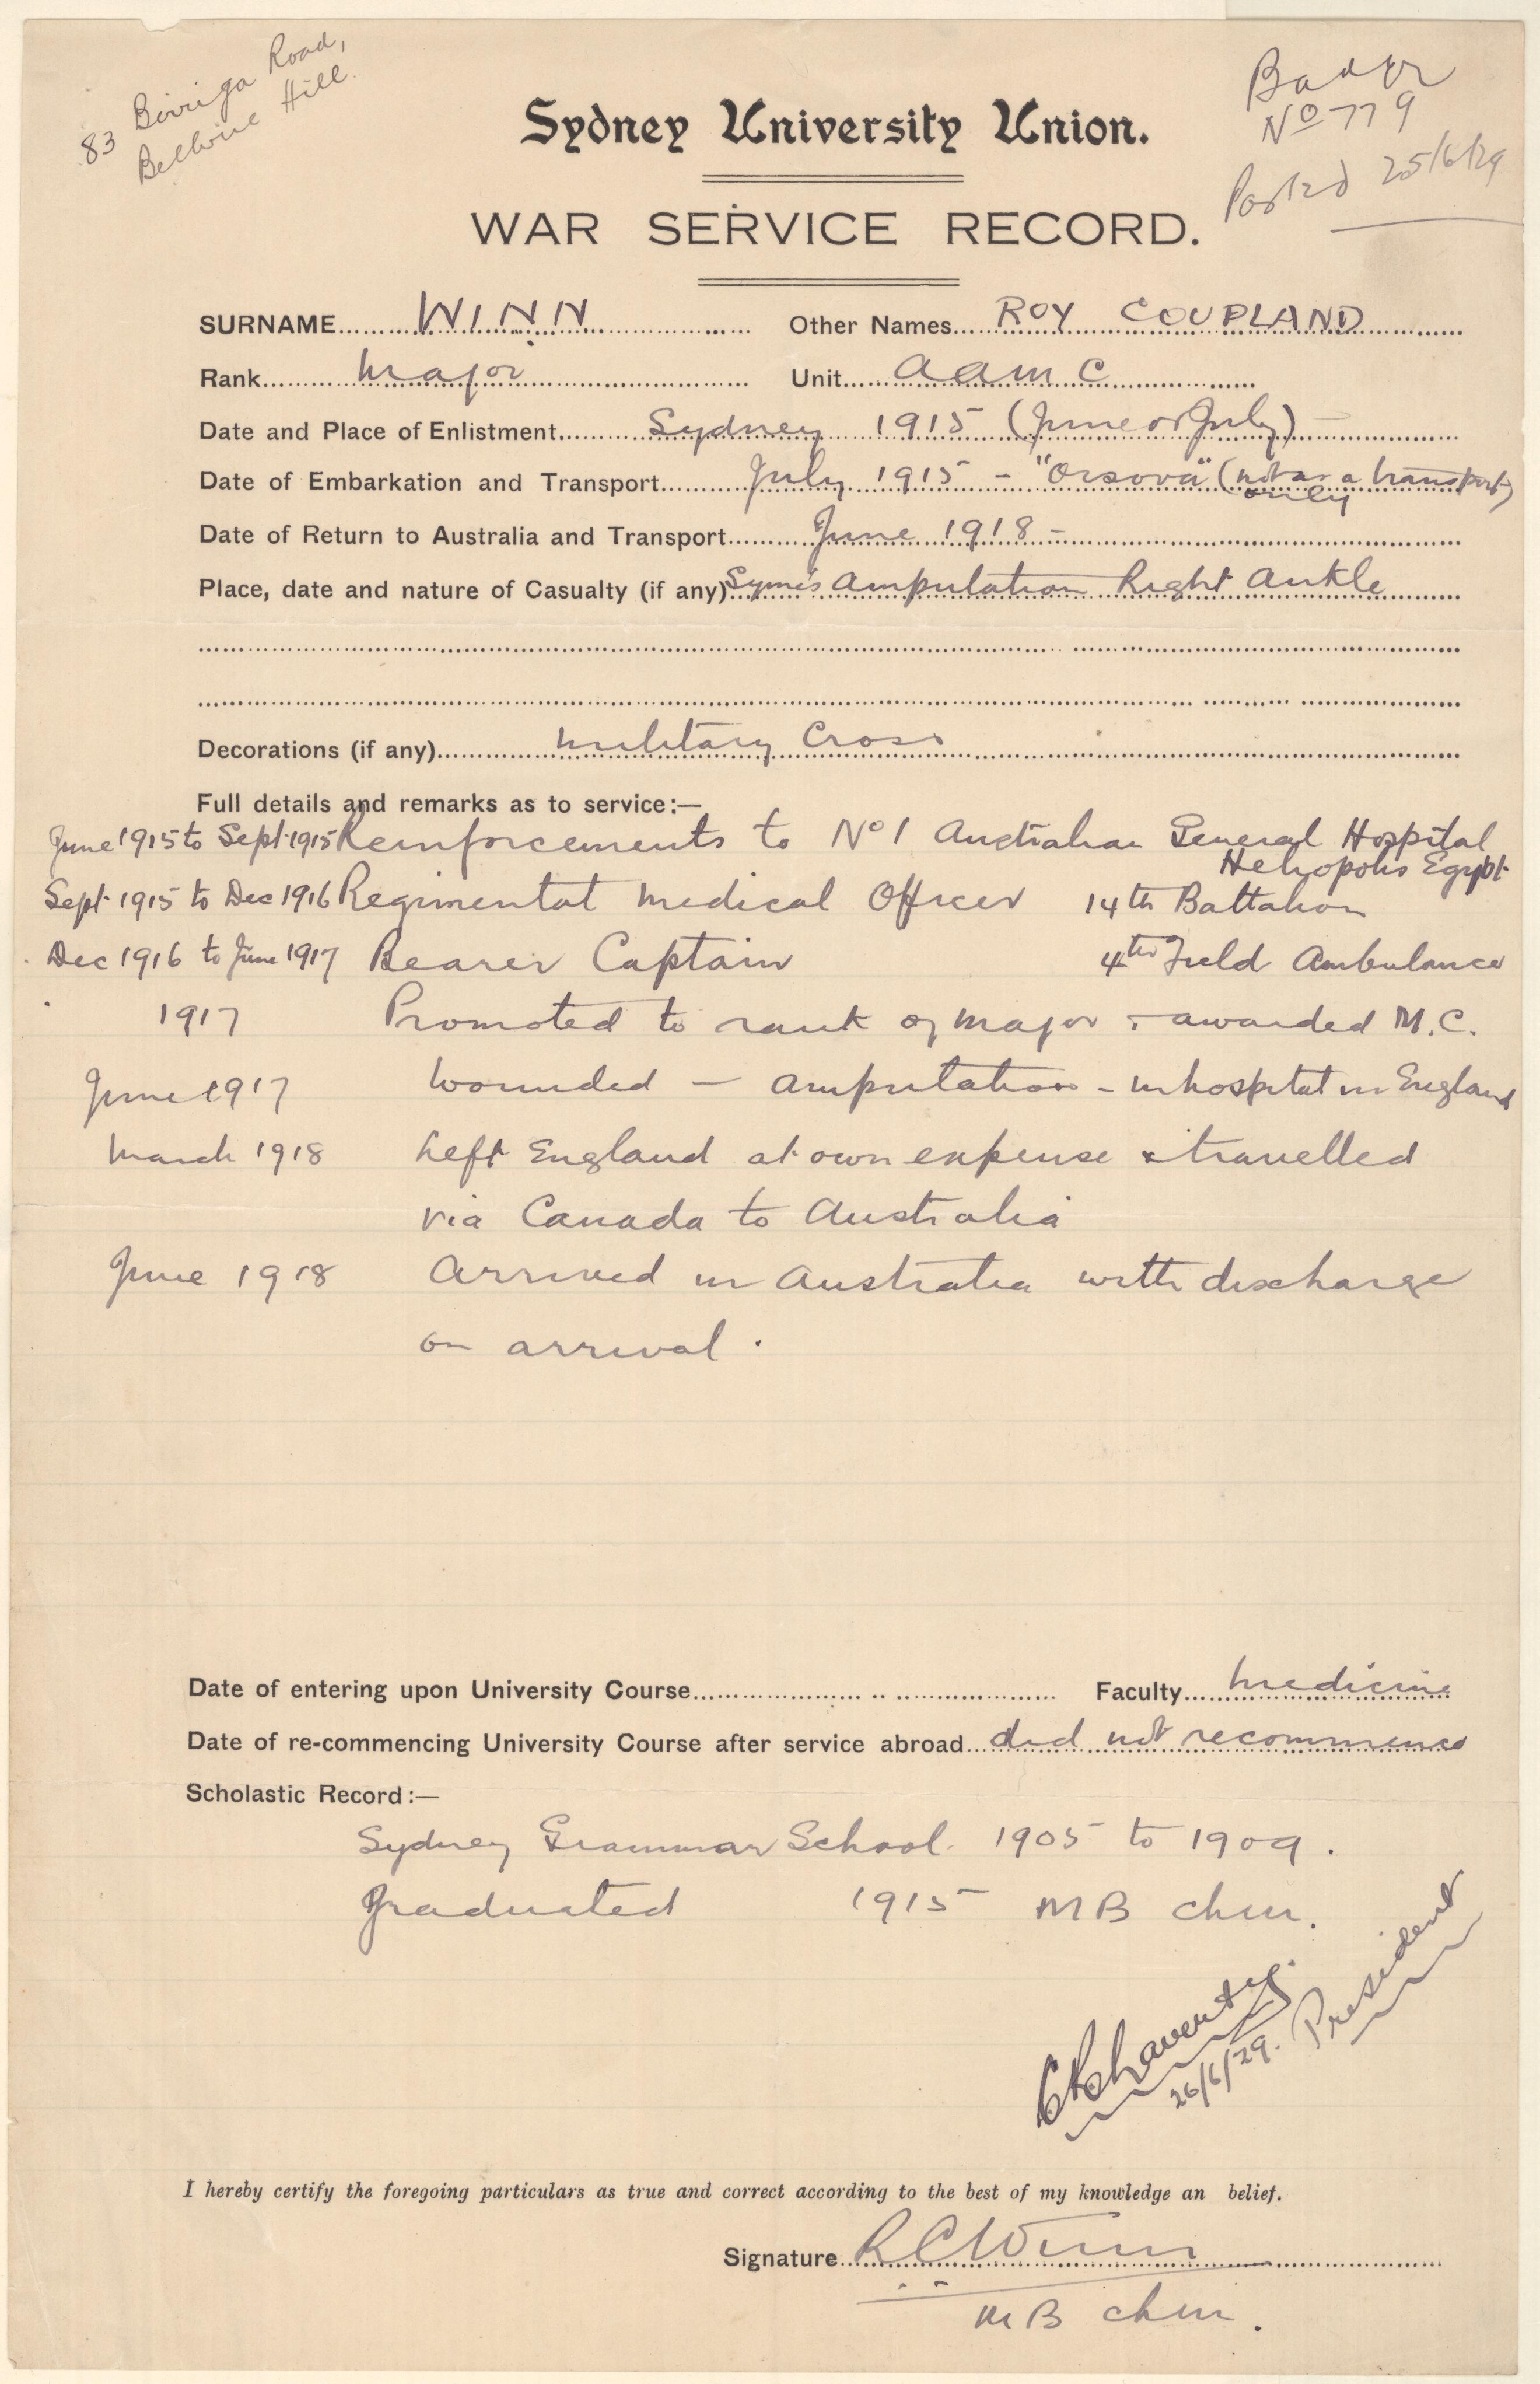 83 Birriga Road,
Bellevue Hill.
Badge
No 779
Posted 25/6/29
Sydney University Union.
WAR SERVICE RECORD.
SURNAME WINN Other Names ROY COUPLAND
Rank Major Unit AAMC
Date and Place of Enlistment Sydney 1915 (June or July)
Date of Embarkation and Transport July 1915 - "Orsova" (not as a transport)
only
Date of Return to Australia and Transport June 1918 -
Place, date and nature of Casualty (if any) Syme's Amputation Right Ankle
Decorations (if any) Military Cross
Full details and remarks as to service:—
June 1915 to Sept. 1915 Reinforcements to No 1 Australian General Hospital
Heliopolis Egypt.
Sept. 1915 to Dec 1916 Regimental Medical Officer 14th Battalion
Dec 1916 to June 1917 Bearer Captain 4th Field Ambulance
1917 Promoted to rank of Major - awarded M.C.
June 1917 Wounded - amputation - in hospital in England
March 1918 Left England at own expense & travelled
via Canada to Australia
June 1918 Arrived in Australia with discharge
on arrival.
Date of entering upon University Course Faculty Medicine
Date of re-commencing University Course after service abroad did not recommence
Scholastic Record:—
Sydney Grammar School. 1905 to 1909.
Graduated 1915 MB ChM.
26/6/29. President
I hereby certify the foregoing particulars as true and correct according to the best of my knowledge an belief.
Signature RCWinn
MB ChM.